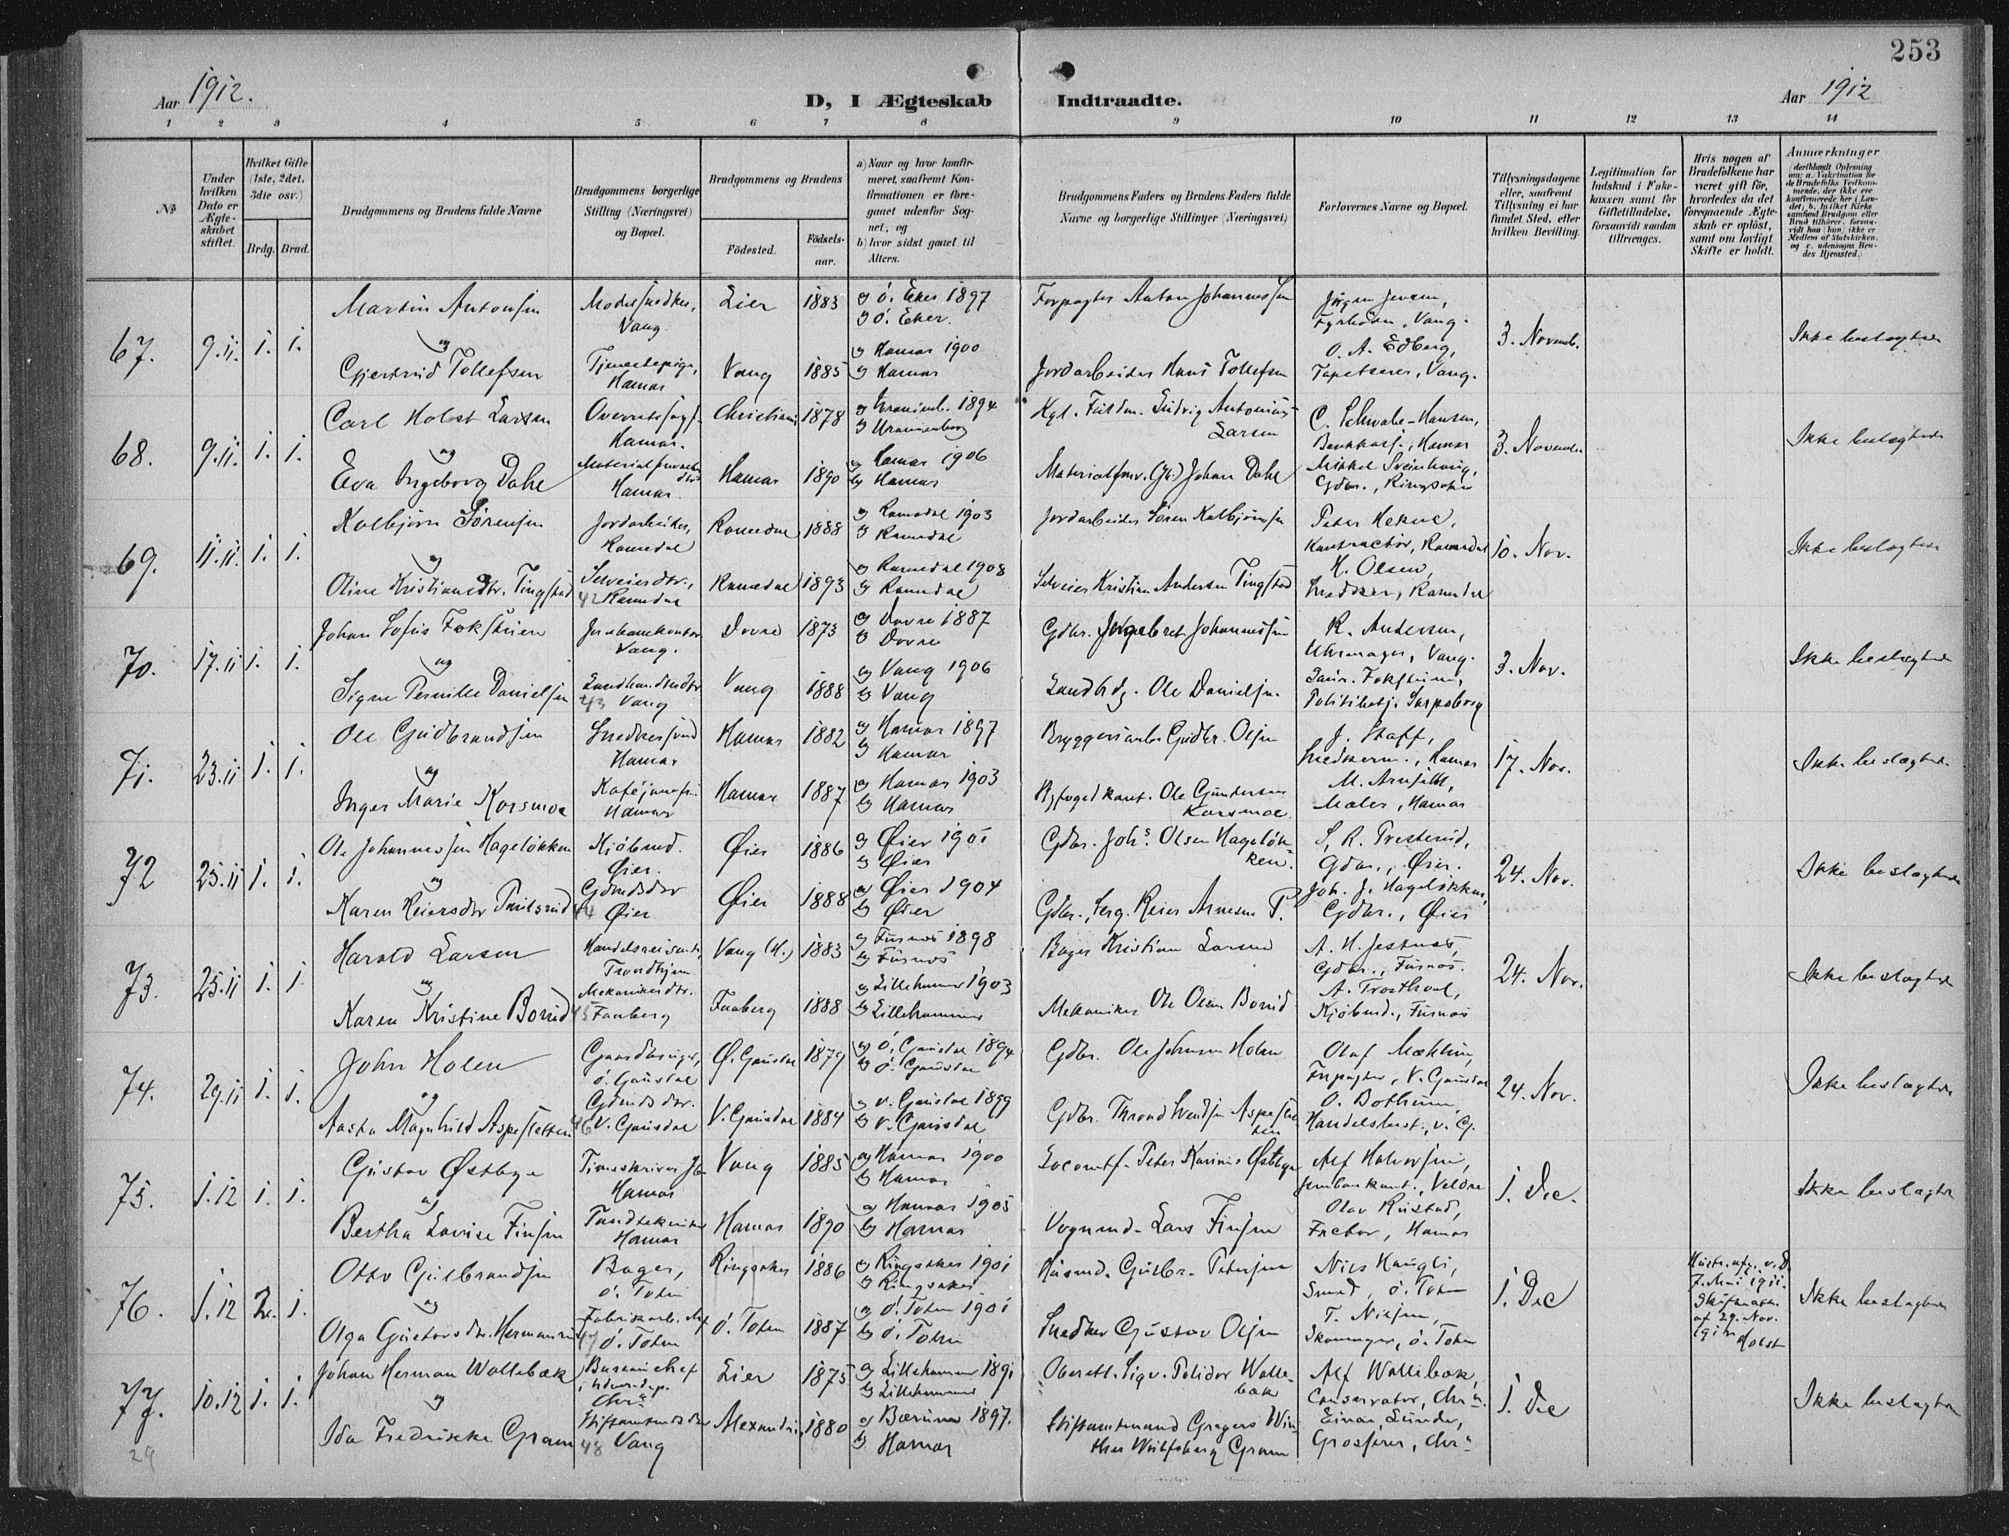 253
Aar 1912.
D, I Ægteskab Indtraadte.
Aar 1912
1 2 3 4 5 6 7 8 9 10 11 12 13 14
№
Under hvilken Dato er Ægteskabet stiftet.
Hvilket Gifte (1ste, 2det, 3die osv.)
Brdg. Brud.
Brudgommens og Brudens fulde Navne
Brudgommens borgerlige Stilling (Næringsvei) og Bopæl.
Brudgommens og Brudens
Fødested. Fødselsaar.
a) Naar og hvor konfirmeret, saafremt Konfirmationen er foregaaet udenfor Sognet, og
b) hvor sidst gaaet til Alters.
Brudgommens Faders og Brudens Faders fulde Navne og borgerlige Stillinger (Næringsvei)
Forlovernes Navne og Bopæl.
Tillysningsdagene eller, saafremt Tillysning ei har fundet Sted, efter hvilken Bevilling.
Legitimation for Indskud i Enkekassen samt for Giftetilladelse, forsaavidt saadan tiltrænges.
Hvis nogen af Brudefolkene har været gift før, hvorledes da det foregaaende Ægteskab er opløst, samt om lovligt Skifte er holdt.
Anmærkninger
67. 9.11. 1. 1. Martin Antonsen Vang. Lier 1883 a) Ø. Eker 1897 b) Ø. Eker. Forpagter Anton Johannessen Jørgen Jensen, Vang. 3. Novemb. Ikke beslægtede
og
Gjertrud Tollefsen Tjenestepige, Hamar Vang 1885 a) Hamar 1900 b) Hamar Jordarbeider Hans Tollefsen O. A. Edberg, Tapetserer, Vang.
68. 9.11. 1. 1. Carl Holst Larsen Hamar. Christiania 1878 a) Uranienb. 1894 b) Uranienborg Ludvig Antonius Larsen C. Schwabe-Hansen, Hamar 3. Novemb. Ikke beslægtede
og
Eva Ingeborg Dahl Hamar. Hamar 1890 a) Hamar 1906 b) Hamar Johan Dahl Mikkel Sveinhaug, Gdbr., Ringsaker
69. 11.11. 1. 1. Kolbjørn Sørensen Jordarbeider, Romedal Romedal 1888 a) Romedal 1903 b) Romedal Jordarbeider Søren Kolbjørnsen Peter Hekne, Kontractør, Romedal 10. Nov. Ikke beslægtede
og
Oline Kristiansdtr. Tingstad Selveierdtr., 42 Romedal Romedal 1893 a) Romedal 1908 b) Romedal Selveier Kristian Andersen Tingstad H. Olsen, Snedker, Romedal
70. 17.11 1. 1. Johan Sofus Fokstuen Vang. Dovre 1873 a) Dovre 1887 b) Dovre Gdbr. Ingebret Johannessen R. Andersen, Uhrmager, Vang. 3. Nov. Ikke beslægtede
og
Signe Pernille Danielsen 43 Vang Vang 1888 a) Vang 1906 b) Vang Landhdl. Ole Danielsen Sarpsborg
71. 23.11 1. 1. Ole Gudbrandsen Snedkersvend Hamar Hamar 1882 a) Hamar 1897 b) Hamar Bryggeriarb. Gudbr. Olsen J. Staff, Snedkerm., Hamar 17. Nov. Ikke beslægtede
og
Inger Marie Korsmoe Kaféjomfru Hamar Hamar 1887 a) Hamar 1903 b) Hamar Ole Gundersen Korsmoe. Maler, Hamar
72 25.11 1. 1. Ole Johannessen Hageløkken Kjøbmd. Øier. Øier 1886 a) Øier 1901 b) Øier Gdbr. Johs Olsen Hageløkken. Gdbr., Øier. 24. Nov. Ikke beslægtede
og
Karen Reiersdtr Gdmdsdtr 44 Øier Øier 1888 a) Øier 1904 b) Øier Gdbr., Serg. Reier Arnesen P. Joh. J. Hageløkken, Gdbr., Øier
73. 25.11 1. 1. Harald Larsen Trondhjem Vang (H.) 1883 a) Furnes 1898 b) Furnes Bager Kristian Larsen A. H. Jesnes, Gdbr., Furnes. 24. Nov. Ikke beslægtede
og
Karen Kristine Borud Mekanikerdtr. 45 Faaberg Faaberg 1888 a) Lillehammer 1903 b) Lillehammer Mekaniker Ole Olsen Borud Kjøbmd., Furnes
74. 29.11 1. 1. John Holen Gaardbruger, Ø. Gausdal Ø. Gausdal 1879 a) Ø. Gausdal 1894 b) Ø. Gausdal Gdbr. Ole Johnsen Holen Olaf Mæhlum, Forpagter, V. Gausdal 24. Nov. Ikke beslægtede
og
Aasta Magnhild Aspesletten Gdmdsdtr. 46 V. Gausdal V. Gausdal 1884 a) V. Gausdal 1899 b) V. Gausdal Gdbr. Thrond Svendsen Aspesletten O. Bothum, Handelsbest., V. G.
75. 1.12 1. 1. Gustav Østbye Hamar Vang 1885 a) Hamar 1900 b) Hamar Locomtf. Peter Karinus Østbye Alf Halvorsen, Veldre 1. Dec. Ikke beslægtede
og
Bertha Lovise Finsen Tandtekniker Hamar Hamar 1890 a) Hamar 1905 b) Hamar Vognmd. Lars Finsen Olav Rustad, Hamar
76. 1.12 2. 1. Otto Gulbrandsen Bager, Ø. Toten Ringsaker 1886 a) Ringsaker 1901 b) Ringsaker Husmd. Gulbr. Petersen Nils Haugli, Smed, Ø. Toten 1. Dec Hustr. afg. v. D. 7. Mai 1911. Skifteatt. af 29. Nov. 1912 Holst Ikke beslægtede
og
Olga Gustavsdtr. Hermanrud 47 Ø. Toten Ø. Toten 1887 a) Ø. Toten 1901 b) Ø. Toten Snedker Gustav Olsen T. Nilsen, Skomager, Ø. Toten
77. 10.12 1. 1. Johan Herman Wollebæk Bureauchef Chra Lier 1875 a) Lillehammer 1891 b) Lillehammer Oberstl. Sigv. Polidor Wollebæk Alf Wollebæk, Conservator, Chra. 1. Dec Ikke beslægtede
og
Ida Fredrikke Gram Stiftamtmdsdtr 48 Vang Alexandria 1880 a) Bærum 1897. b) Hamar Stiftamtmand Gregers Winther Wulfsberg Gram Einar Sunder, Grosserer, Chra
29